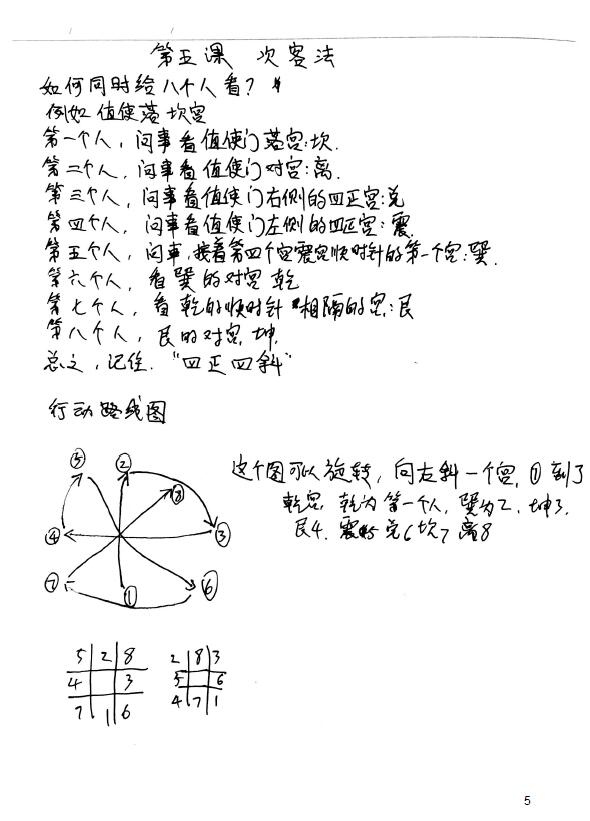 第五课 次客法
如何同时给八个人看?
例如 值使落坎宫
第一个人,问事看值使门落宫:坎.
第二个人,问事看值使门对宫:离.
第三个人,问事看值使门右侧的四正宫:兑
第四个人,问事看值使门左侧的四正宫:震.
第五个人,问事,接着第四个宫震宫顺时针的第一个宫:巽.
第六个人,看巽的对宫乾
第七个人,看乾的顺时针相隔的宫:艮
第八个人,艮的对宫,坤.
总之,记住.“四正四斜”
行动路线图
⑤ ② ⑧
④ ③
⑦ ① ⑥
这个图可以旋转,向左斜一个宫,①到了
乾宫,乾为第一个人,巽为2,坤3,
艮4.震5兑6坎7离8
5 2 8
4 3
7 1 6
2 8 3
5 6
4 7 1
5